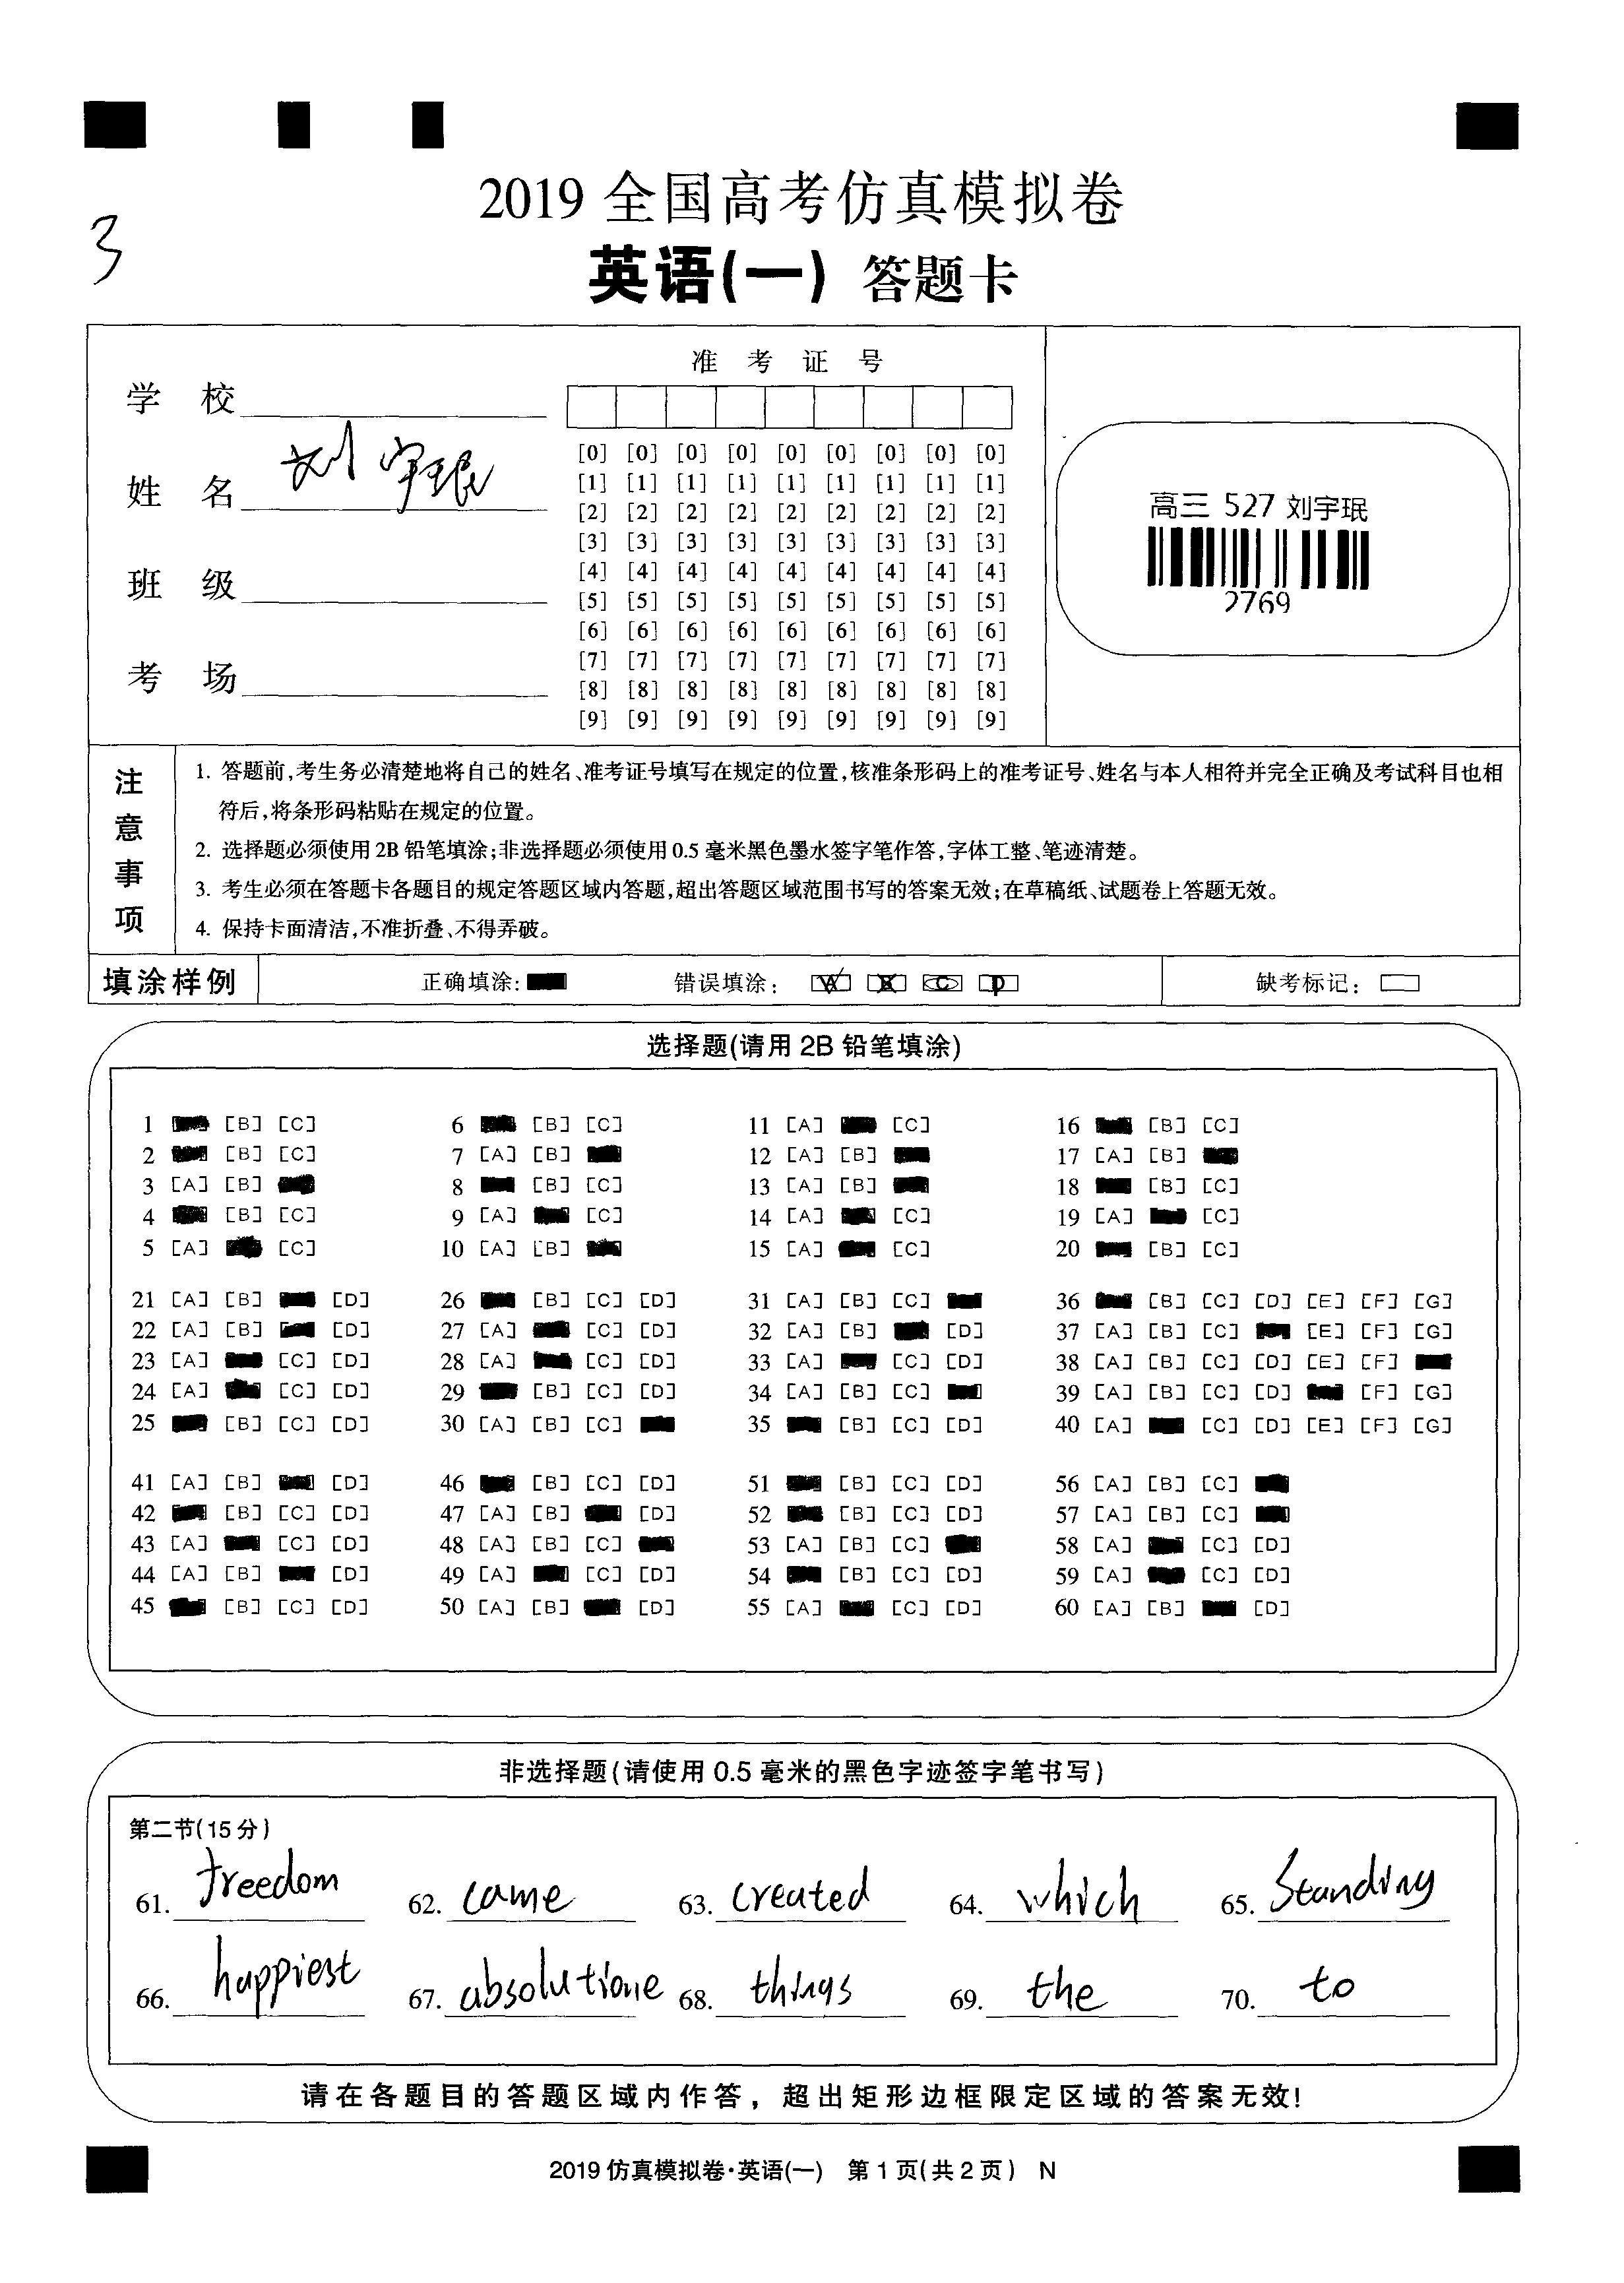 2019 全国高考仿真模拟卷
3
英语(一) 答题卡
准 考 证 号
学 校
姓 名 刘宇珉
班 级
考 场
[0] [0] [0] [0] [0] [0] [0] [0] [0]
[1] [1] [1] [1] [1] [1] [1] [1] [1]
[2] [2] [2] [2] [2] [2] [2] [2] [2]
[3] [3] [3] [3] [3] [3] [3] [3] [3]
[4] [4] [4] [4] [4] [4] [4] [4] [4]
[5] [5] [5] [5] [5] [5] [5] [5] [5]
[6] [6] [6] [6] [6] [6] [6] [6] [6]
[7] [7] [7] [7] [7] [7] [7] [7] [7]
[8] [8] [8] [8] [8] [8] [8] [8] [8]
[9] [9] [9] [9] [9] [9] [9] [9] [9]
高三 527 刘宇珉
2769
注意事项
1. 答题前,考生务必清楚地将自己的姓名、准考证号填写在规定的位置,核准条形码上的准考证号、姓名与本人相符并完全正确及考试科目也相
符后,将条形码粘贴在规定的位置。
2. 选择题必须使用2B铅笔填涂;非选择题必须使用0.5毫米黑色墨水签字笔作答,字体工整、笔迹清楚。
3. 考生必须在答题卡各题目的规定答题区域内答题,超出答题区域范围书写的答案无效;在草稿纸、试题卷上答题无效。
4. 保持卡面清洁,不准折叠、不得弄破。
填涂样例 正确填涂: 错误填涂: A B C D 缺考标记:
选择题(请用 2B 铅笔填涂)
1 [B] [C] 6 [B] [C] 11 [A] [C] 16 [B] [C]
2 [B] [C] 7 [A] [B] 12 [A] [B] 17 [A] [B]
3 [A] [B] 8 [B] [C] 13 [A] [B] 18 [B] [C]
4 [B] [C] 9 [A] [C] 14 [A] [C] 19 [A] [C]
5 [A] [C] 10 [A] [B] 15 [A] [C] 20 [B] [C]
21 [A] [B] [D] 26 [B] [C] [D] 31 [A] [B] [C] 36 [B] [C] [D] [E] [F] [G]
22 [A] [B] [D] 27 [A] [C] [D] 32 [A] [B] [D] 37 [A] [B] [C] [E] [F] [G]
23 [A] [C] [D] 28 [A] [C] [D] 33 [A] [C] [D] 38 [A] [B] [C] [D] [E] [F]
24 [A] [C] [D] 29 [B] [C] [D] 34 [A] [B] [C] 39 [A] [B] [C] [D] [F] [G]
25 [B] [C] [D] 30 [A] [B] [C] 35 [B] [C] [D] 40 [A] [C] [D] [E] [F] [G]
41 [A] [B] [D] 46 [B] [C] [D] 51 [B] [C] [D] 56 [A] [B] [C]
42 [B] [C] [D] 47 [A] [B] [D] 52 [B] [C] [D] 57 [A] [B] [C]
43 [A] [C] [D] 48 [A] [B] [C] 53 [A] [B] [C] 58 [A] [C] [D]
44 [A] [B] [D] 49 [A] [C] [D] 54 [B] [C] [D] 59 [A] [C] [D]
45 [B] [C] [D] 50 [A] [B] [D] 55 [A] [C] [D] 60 [A] [B] [D]
非选择题(请使用 0.5 毫米的黑色字迹签字笔书写)
第二节(15分)
61. freedom 62. came 63. created 64. which 65. Standing
66. happiest 67. absolutione 68. things 69. the 70. to
请在各题目的答题区域内作答，超出矩形边框限定区域的答案无效!
2019 仿真模拟卷·英语(一) 第 1 页(共 2 页) N